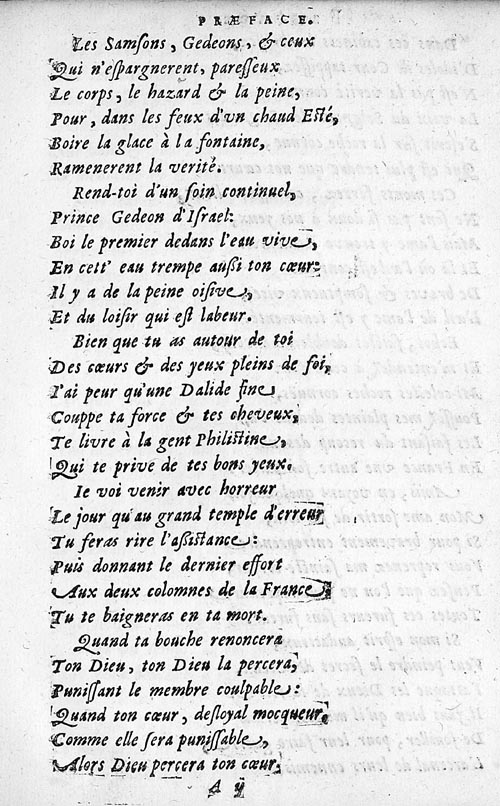 PRÆFACE.
Les Samſons, Gedeons, & ceux
Qui n'eſpargnerent, pareſſeux
Le corps, le hazard & la peine,
Pour, dans les feux d'vn chaud Eſté,
Boire la glace à la fontaine,
Ramenerent la verité.
Rend-toi d'un ſoin continuel,
Prince Gedeon d'Iſrael:
Boi le premier dedans l'eau vive,
En cett' eau trempe auſſi ton cœur:
Il y a de la peine oiſive,
Et du loiſir qui eſt labeur.
Bien que tu as autour de toi
Des cœurs & des yeux pleins de foi,
I'ai peur qu'une Dalide fine
Couppe ta force & tes cheveux,
Te livre à la gent Philiſtine,
Qui te prive de tes bons yeux.
Ie voi venir avec horreur
Le jour qu'au grand temple d'erreur
Tu feras rire l'aſſiſtance:
Puis donnant le dernier effort
Aux deux colomnes de la France,
Tu te baigneras en ta mort.
Quand ta bouche renoncera
Ton Dieu, ton Dieu la percera,
Puniſſant le membre coulpable:
Quand ton cœur, desloyal mocqueur,
Comme elle ſera puniſſable,
Alors Dieu percera ton cœur.
A ij